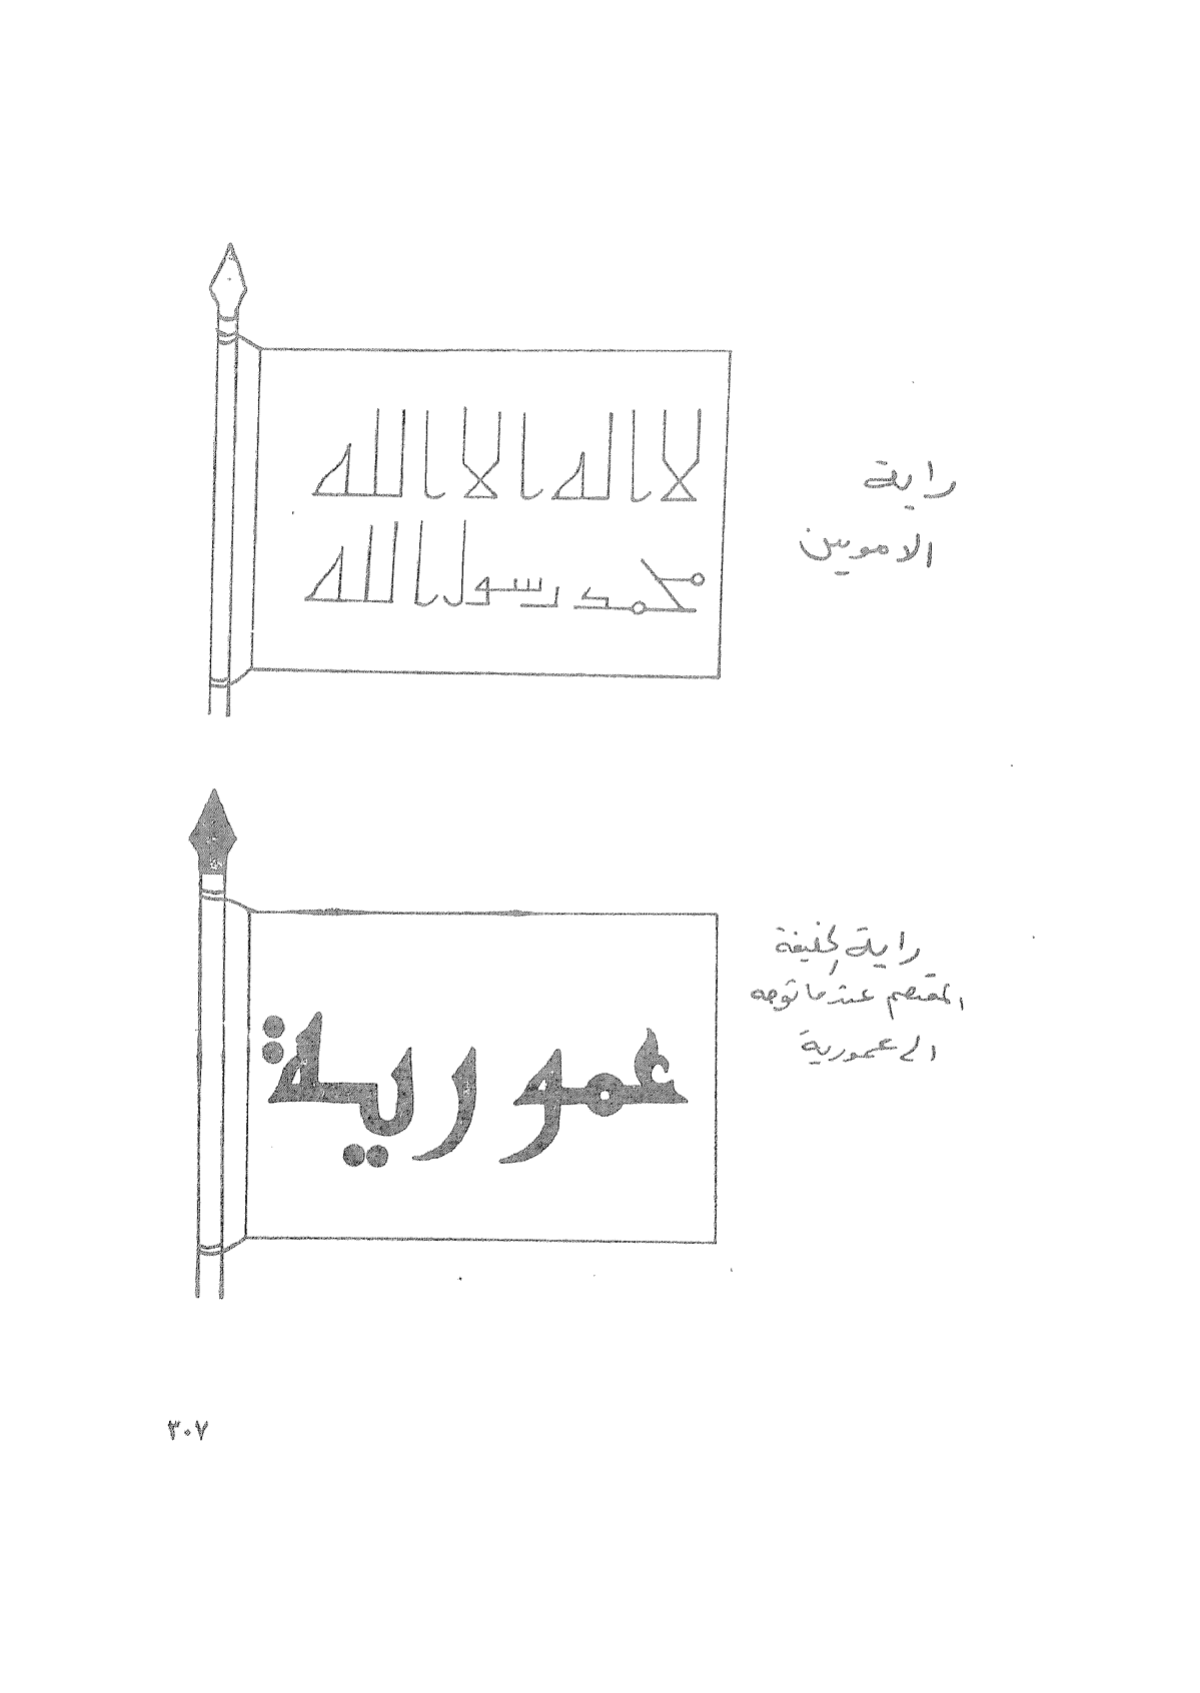 لا اله الا الله
محمد رسول الله
راية
الامويين
عمورية
راية الخليفة
المعتصم عندما توجه
الى عمورية
٣٠٧